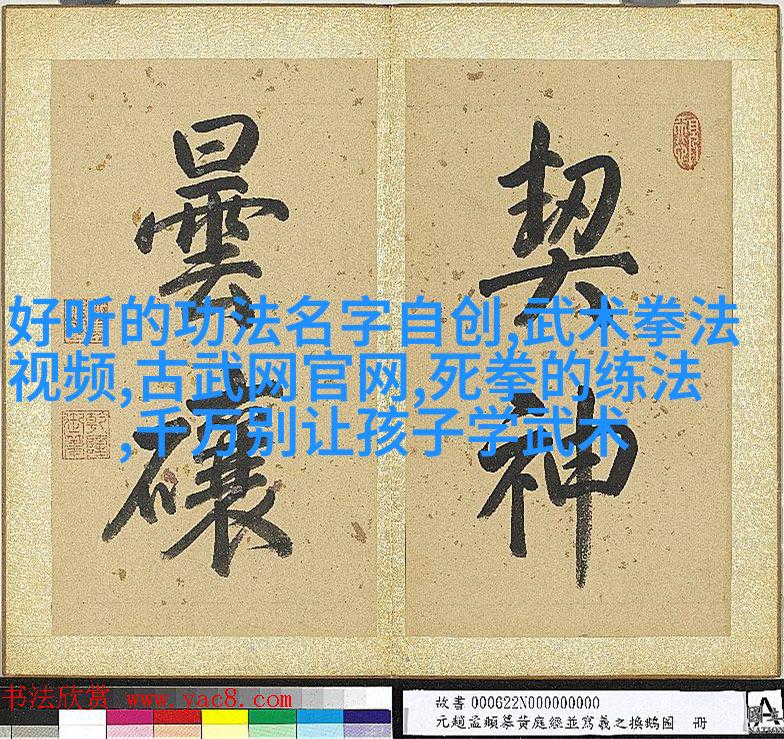 契神
曇礦
好听的功法名字自创,武术拳法
视频,古武网官网,死拳的练法
,千万别让孩子学武术
书法欣赏 www.yac8.com
故書 000622N000000000
元趙孟頫墓黃庭經並寫羲之換鵝圖 冊